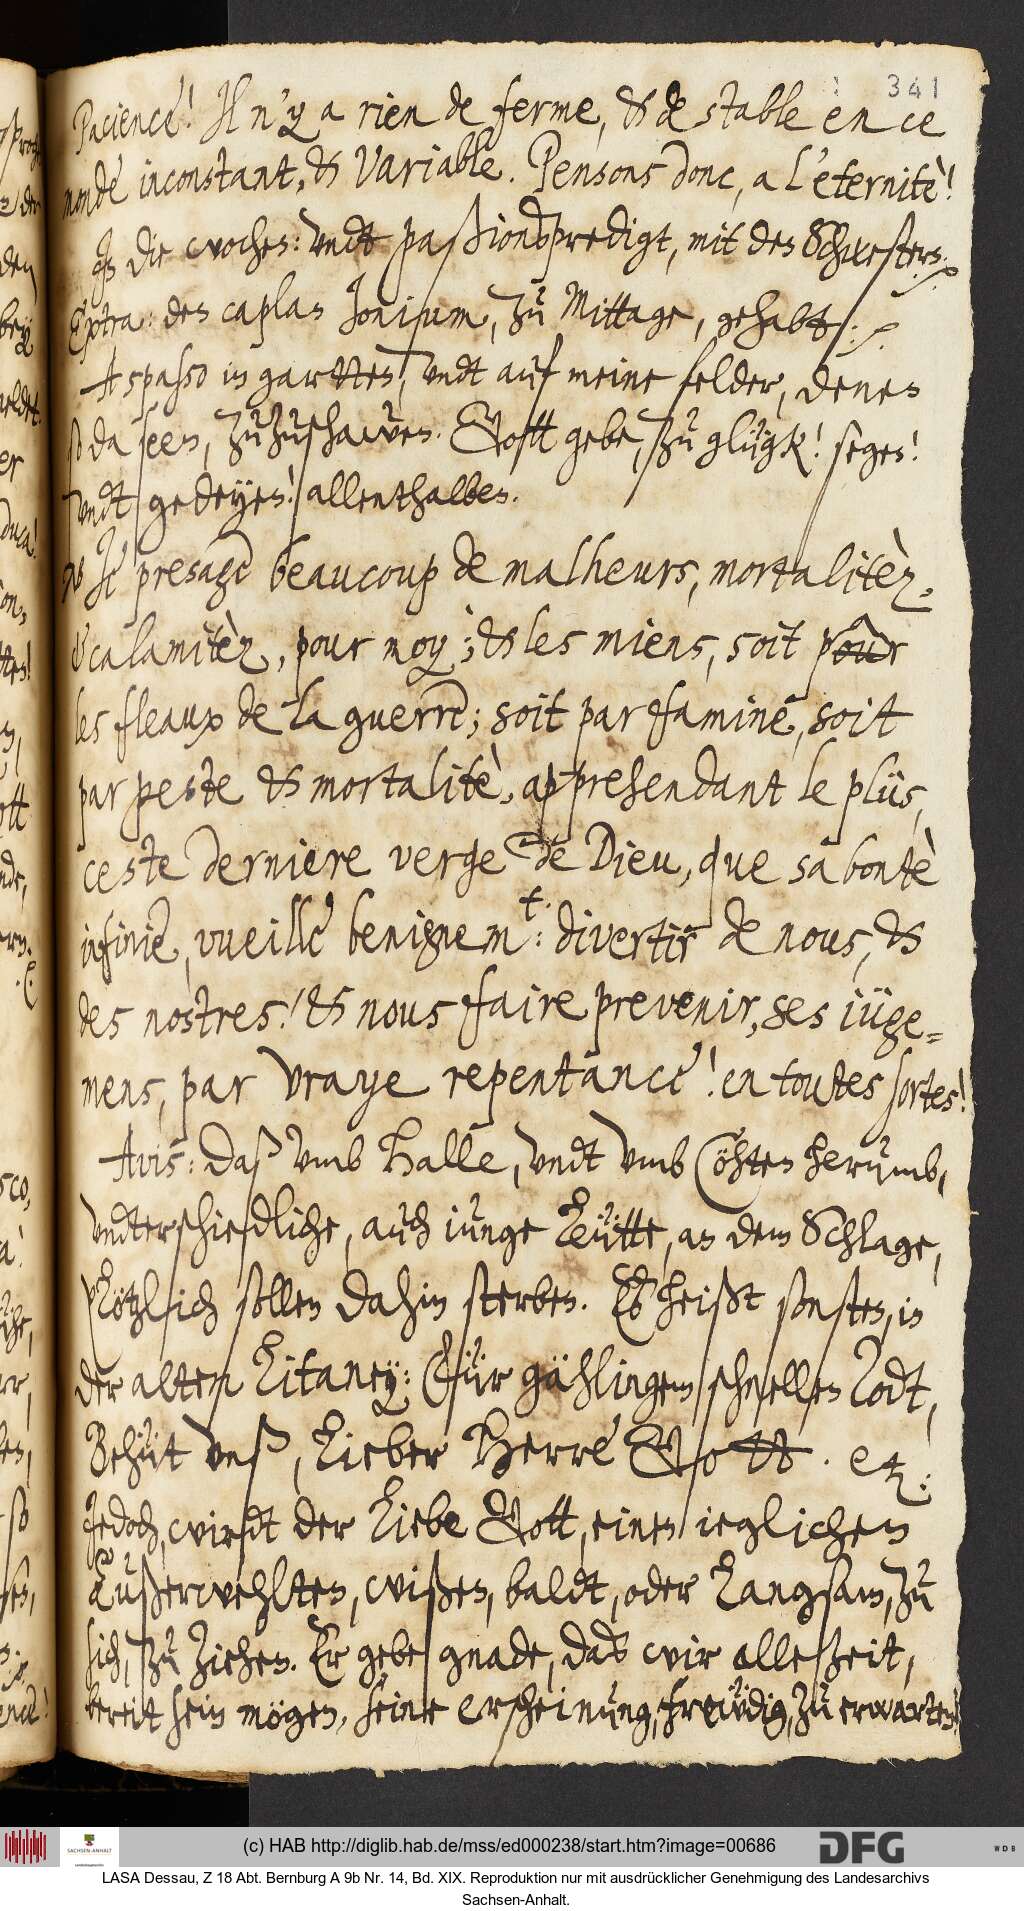 341
Pacience! Il n'y a rien de ferme, & de stable en ce
monde inconstant, & variable. Pensons donc, a l'eternitè!
In die wochen: vndt paßionspredigt, mit den Schwestern.
Extra: den caplan Jonium, zu Mittage, gehabtt ./.
A spasso in gartten, vndt auf meine felder, denen
so da seen, zuzuschawen. Gott gebe, zu glügk! segen!
vndt gedeyen! allenthalben.
NB Je presage beaucoup de malheurs, mortalitèz,
& calamitèz, pour moy; & les miens, soit pour
les fleaux de la guerre; soit par famine, soit
par peste & mortalitè, apprehendant le plüs,
ceste derniere verge de Dieu, que sa bontè
infinie, vueille benignem.t: divertir de nous, &
des nostres! & nous faire prevenir, ses iüge-
mens, par vraye repentance! en toutes sortes!
Avis: daß vmb Halle, vndt vmb Cöhten herumb,
vndterschiedliche, auch iunge Leütte, an dem Schlage,
plötzlich sollen dahin sterben. Es heißt sonsten, in
der alten Litaney: Für gählingem schnellen Todt,
Behüt vnß, Lieber Herre Gott. etz.:
Jedoch, wirdt der Liebe Gott, einen ieglichen
Außerwehlten, wißen, baldt, oder Langsam, zu
sich, zu ziehen. Er gebe gnade, das wir alleßeit,
bereit sein mögen, seine erscheinung, frewdig, zu erwarten!
(c) HAB http://diglib.hab.de/mss/ed000238/start.htm?image=00686
SACHSEN-ANHALT
DFG
WDB
LASA Dessau, Z 18 Abt. Bernburg A 9b Nr. 14, Bd. XIX. Reproduktion nur mit ausdrücklicher Genehmigung des Landesarchivs
Sachsen-Anhalt.